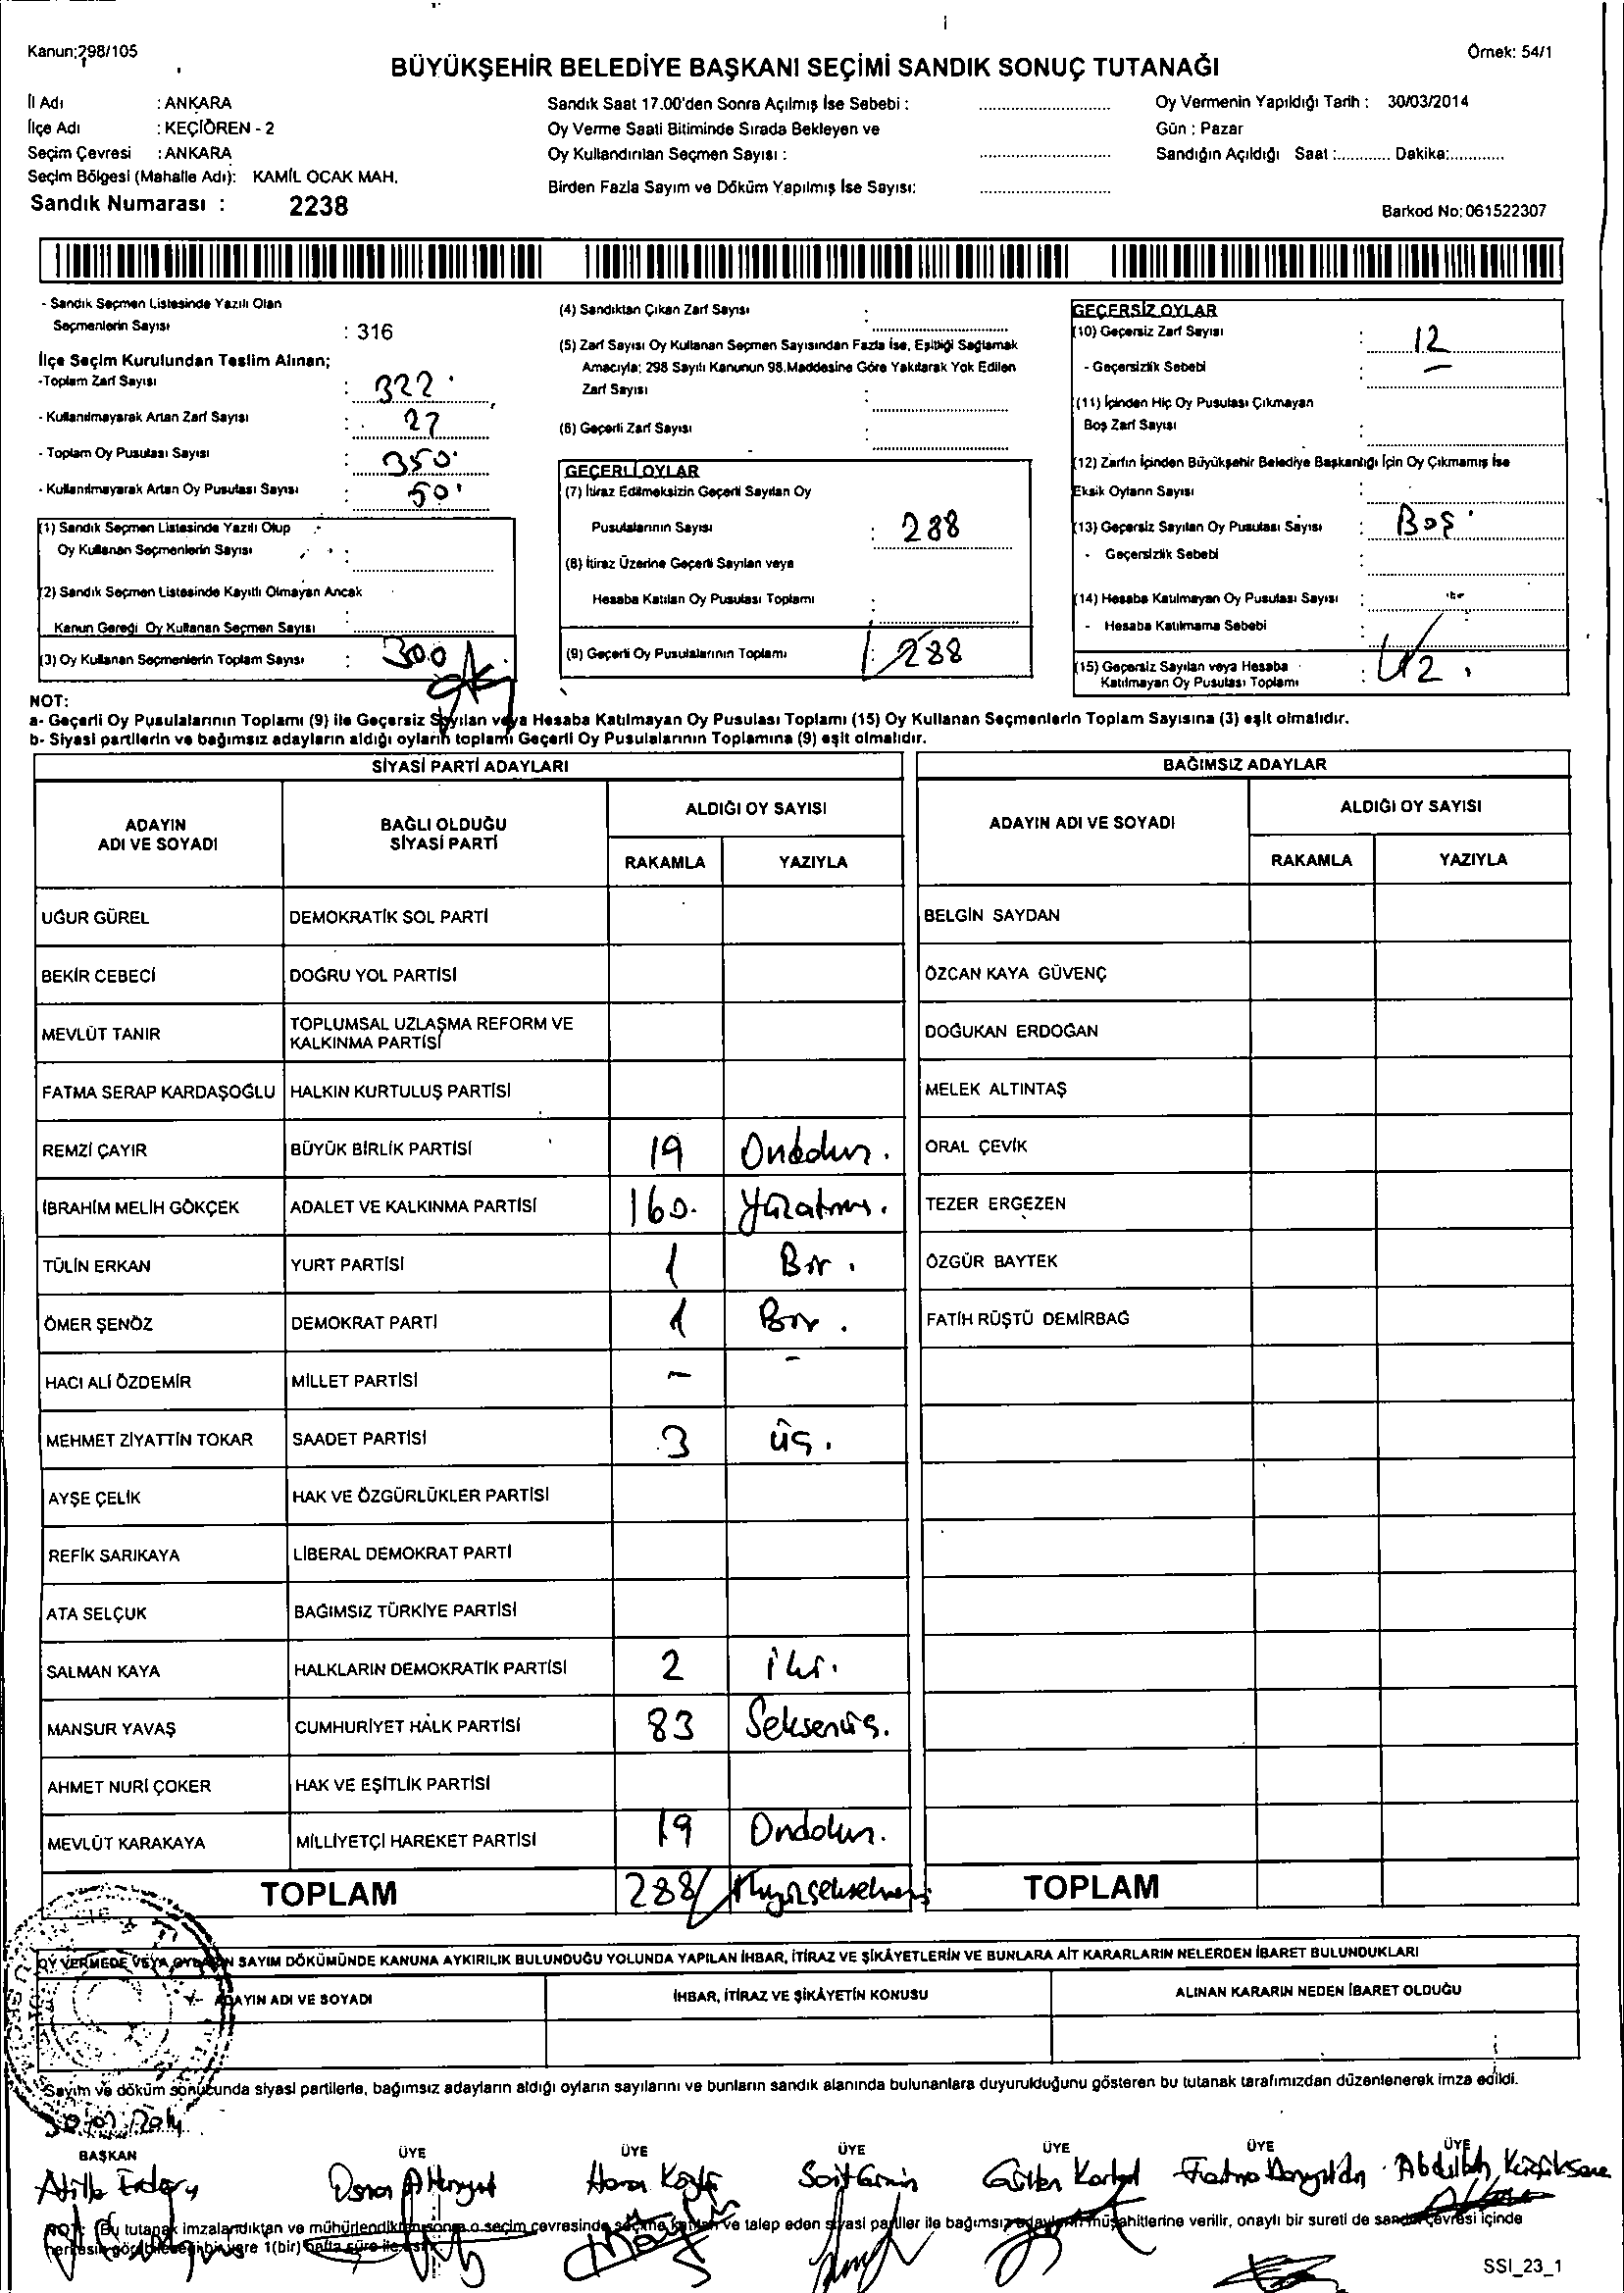 Kanun;298/105
Örnek: 54/1
BÜYÜKŞEHİR BELEDİYE BAŞKANI SEÇİMİ SANDIK SONUÇ TUTANAĞI
İl Adı : ANKARA
İlçe Adı : KEÇİÖREN - 2
Seçim Çevresi : ANKARA
Seçim Bölgesi (Mahalle Adı): KAMİL OCAK MAH.
Sandık Numarası : 2238
Sandık Saat 17.00'den Sonra Açılmış İse Sebebi :
Oy Verme Saati Bitiminde Sırada Bekleyen ve
Oy Kullandırılan Seçmen Sayısı :
Birden Fazla Sayım ve Döküm Yapılmış İse Sayısı:
Oy Vermenin Yapıldığı Tarih : 30/03/2014
Gün : Pazar
Sandığın Açıldığı Saat :............ Dakika:............
Barkod No: 061522307
- Sandık Seçmen Listesinde Yazılı Olan
Seçmenlerin Sayısı : 316
İlçe Seçim Kurulundan Teslim Alınan;
-Toplam Zarf Sayısı : 322
- Kullanılmayarak Artan Zarf Sayısı : 27
- Toplam Oy Pusulası Sayısı : 350
- Kullanılmayarak Artan Oy Pusulası Sayısı : 50
(1) Sandık Seçmen Listesinde Yazılı Olup
Oy Kullanan Seçmenlerin Sayısı :
(2) Sandık Seçmen Listesinde Kayıtlı Olmayan Ancak
Kanun Gereği Oy Kullanan Seçmen Sayısı :
(3) Oy Kullanan Seçmenlerin Toplam Sayısı : 300
(4) Sandıktan Çıkan Zarf Sayısı :
(5) Zarf Sayısı Oy Kullanan Seçmen Sayısından Fazla İse, Eşitliği Sağlamak
Amacıyla; 298 Sayılı Kanunun 98.Maddesine Göre Yakılarak Yok Edilen
Zarf Sayısı :
(6) Geçerli Zarf Sayısı :
GEÇERLİ OYLAR
(7) İtiraz Edilmeksizin Geçerli Sayılan Oy
Pusulalarının Sayısı : 288
(8) İtiraz Üzerine Geçerli Sayılan veya
Hesaba Katılan Oy Pusulası Toplamı :
(9) Geçerli Oy Pusulalarının Toplamı : 288
GEÇERSİZ OYLAR
(10) Geçersiz Zarf Sayısı : 12
- Geçersizlik Sebebi : -
(11) İçinden Hiç Oy Pusulası Çıkmayan
Boş Zarf Sayısı :
(12) Zarfın İçinden Büyükşehir Belediye Başkanlığı İçin Oy Çıkmamış İse
Eksik Oyların Sayısı :
(13) Geçersiz Sayılan Oy Pusulası Sayısı : Boş
- Geçersizlik Sebebi :
(14) Hesaba Katılmayan Oy Pusulası Sayısı :
- Hesaba Katılmama Sebebi :
(15) Geçersiz Sayılan veya Hesaba
Katılmayan Oy Pusulası Toplamı : 12
NOT:
a- Geçerli Oy Pusulalarının Toplamı (9) ile Geçersiz Sayılan veya Hesaba Katılmayan Oy Pusulası Toplamı (15) Oy Kullanan Seçmenlerin Toplam Sayısına (3) eşit olmalıdır.
b- Siyasi partilerin ve bağımsız adayların aldığı oyların toplamı Geçerli Oy Pusulalarının Toplamına (9) eşit olmalıdır.
SİYASİ PARTİ ADAYLARI
ADAYIN ADI VE SOYADI BAĞLI OLDUĞU SİYASİ PARTİ ALDIĞI OY SAYISI
RAKAMLA YAZIYLA
UĞUR GÜREL DEMOKRATİK SOL PARTİ
BEKİR CEBECİ DOĞRU YOL PARTİSİ
MEVLÜT TANIR TOPLUMSAL UZLAŞMA REFORM VE KALKINMA PARTİSİ
FATMA SERAP KARDAŞOĞLU HALKIN KURTULUŞ PARTİSİ
REMZİ ÇAYIR BÜYÜK BİRLİK PARTİSİ 19 Ondokuz.
İBRAHİM MELİH GÖKÇEK ADALET VE KALKINMA PARTİSİ 160. Yüzatmış.
TÜLİN ERKAN YURT PARTİSİ 1 Bir.
ÖMER ŞENÖZ DEMOKRAT PARTİ 1 Bir.
HACI ALİ ÖZDEMİR MİLLET PARTİSİ - -
MEHMET ZİYATTİN TOKAR SAADET PARTİSİ 3 üç.
AYŞE ÇELİK HAK VE ÖZGÜRLÜKLER PARTİSİ
REFİK SARIKAYA LİBERAL DEMOKRAT PARTİ
ATA SELÇUK BAĞIMSIZ TÜRKİYE PARTİSİ
SALMAN KAYA HALKLARIN DEMOKRATİK PARTİSİ 2 iki.
MANSUR YAVAŞ CUMHURİYET HALK PARTİSİ 83 Seksenüç.
AHMET NURİ ÇOKER HAK VE EŞİTLİK PARTİSİ
MEVLÜT KARAKAYA MİLLİYETÇİ HAREKET PARTİSİ 19 Ondokuz.
TOPLAM 288
BAĞIMSIZ ADAYLAR
ADAYIN ADI VE SOYADI ALDIĞI OY SAYISI
RAKAMLA YAZIYLA
BELGİN SAYDAN
ÖZCAN KAYA GÜVENÇ
DOĞUKAN ERDOĞAN
MELEK ALTINTAŞ
ORAL ÇEVİK
TEZER ERGEZEN
ÖZGÜR BAYTEK
FATİH RÜŞTÜ DEMİRBAĞ
TOPLAM
OY VERMEDE VEYA OYLARIN SAYIM DÖKÜMÜNDE KANUNA AYKIRILIK BULUNDUĞU YOLUNDA YAPILAN İHBAR, İTİRAZ VE ŞİKÂYETLERİN VE BUNLARA AİT KARARLARIN NELERDEN İBARET BULUNDUKLARI
ADAYIN ADI VE SOYADI İHBAR, İTİRAZ VE ŞİKÂYETİN KONUSU ALINAN KARARIN NEDEN İBARET OLDUĞU
Sayım ve döküm sonucunda siyasi partilerle, bağımsız adayların aldığı oyların sayılarını ve bunların sandık alanında bulunanlara duyurulduğunu gösteren bu tutanak tarafımızdan düzenlenerek imza edildi.
BAŞKAN ÜYE ÜYE ÜYE ÜYE ÜYE ÜYE
NOT: (Bu tutanak imzalandıktan ve mühürlendikten sonra o seçim çevresinde seçime katılan ve talep eden siyasi partiler ile bağımsız adayların müşahitlerine verilir, onaylı bir sureti de sandık çevresi içinde
herkesin görebileceği bir yere 1(bir) hafta süre ile asılır.
SSI_23_1